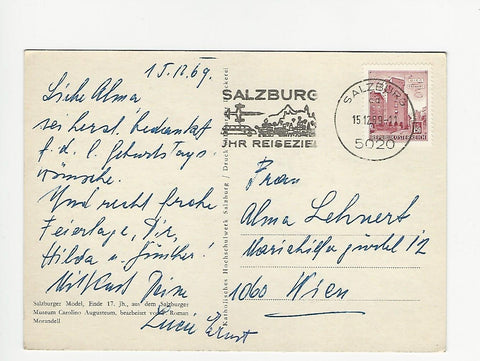 15.12.69.
Liebe Alma
sei herzl. bedankt
f. d. l. Geburtstags-
wünsche.
Und recht frohe
Feiertage, Dir,
Hilda u. Günther!
Deine
Ernst
Salzburger Model, Ende 17. Jh., aus dem Salzburger
Museum Carolino Augusteum, bearbeitet von Roman
Morandell
Katholisches Hochschulwerk Salzburg / Druck
SALZBURG
IHR REISEZIEL
SALZBURG
15.12.69-
5020
REPUBLIK ÖSTERREICH
Frau
Alma Lehnert
Mariahilfer gürtel 12
1060 Wien